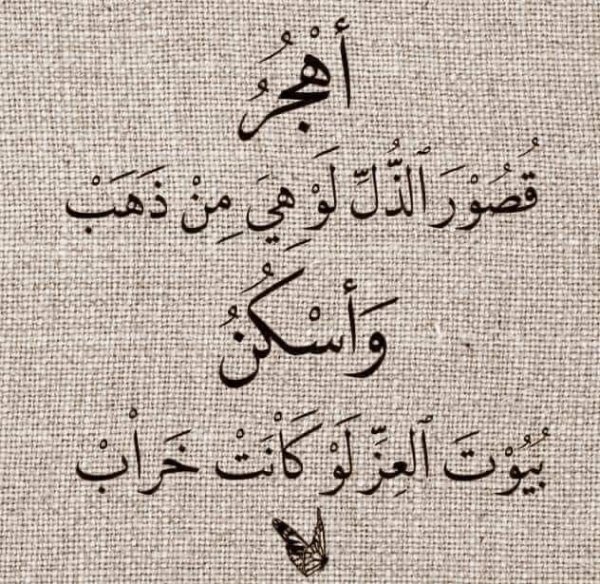 أهْجُرُ
قُصُوْرَ ٱلذُّلِّ لَوْ هِيَ مِنْ ذَهَبْ
وَأسْكُنُ
بُيُوْتَ ٱلعِزِّ لَوْ كَاْنَتْ خَرَاْبْ